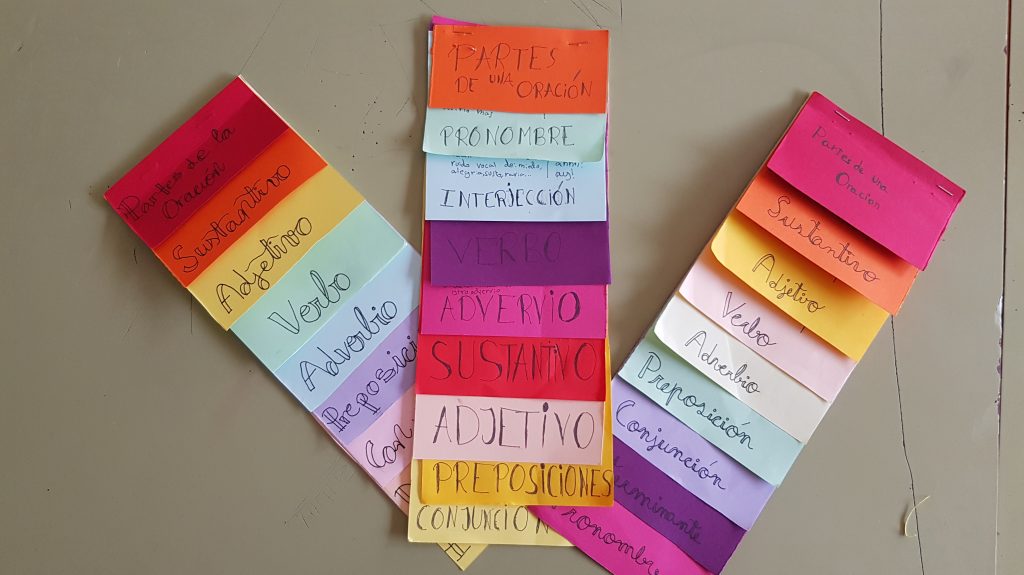 Partes de la
Oración
Sustantivo
Adjetivo
Verbo
Adverbio
PARTES
DE UNA ORACIÓN
PRONOMBRE
ruido vocal de miedo,
INTERJECCIÓN
VERBO
otro adverbio
ADVERVIO
SUSTANTIVO
ADJETIVO
PREPOSICIONES
CONJUNCIÓN
Partes de una
Oracion
Sustantivo
Adjetivo
Verbo
Adverbio
Preposición
Conjunción
Pronombre